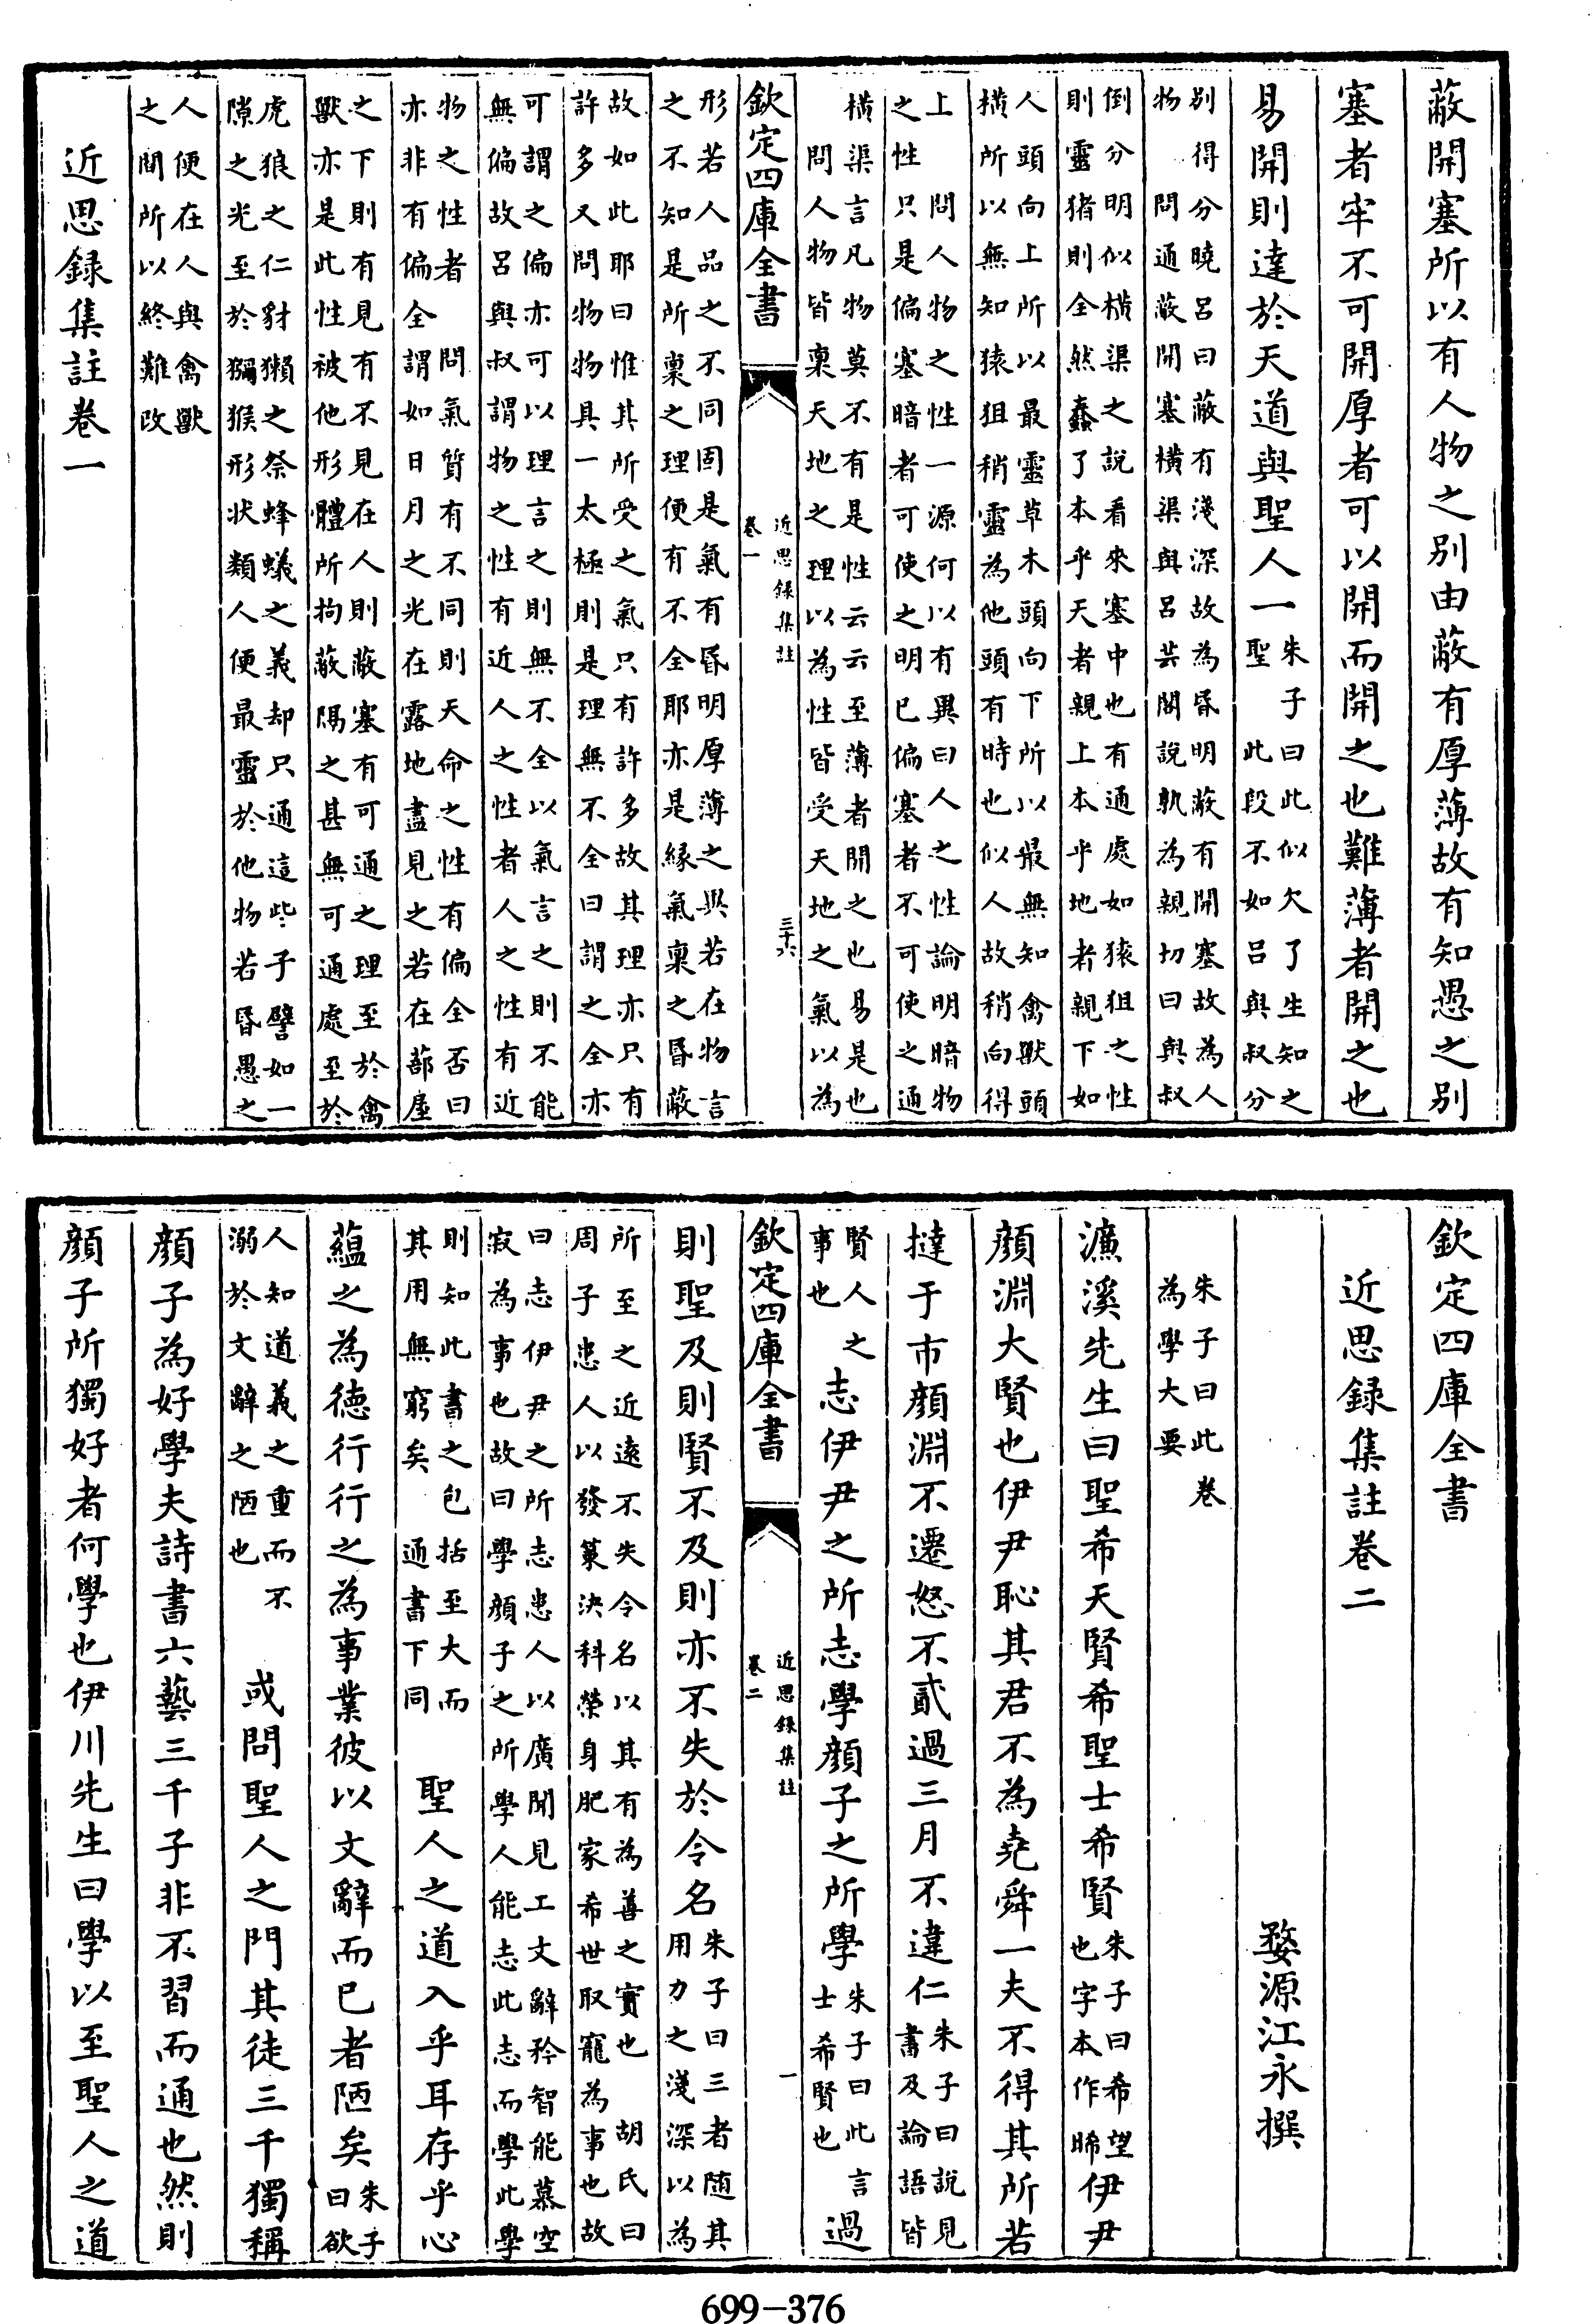 蔽開塞所以有人物之别由蔽有厚薄故有知愚之别
塞者牢不可開厚者可以開而開之也難薄者開之也
易開則達於天道與聖人一朱子曰此似欠了生知之
聖 此段不如呂與叔分
别得分曉呂曰蔽有淺深故為昏明蔽有開塞故為人
物 問通蔽開塞橫渠與呂芸閣說孰為親切曰與叔
倒分明似橫渠之說看來塞中也有通處如猿狙之性
則靈猪則全然蠢了本乎天者親上本乎地者親下如
人頭向上所以最靈草木頭向下所以最無知禽獸頭
橫所以無知猿狙稍靈為他頭有時也似人故稍向得
上 問人物之性一源何以有異曰人之性論明暗物
之性只是偏塞暗者可使之明已偏塞者不可使之通
橫渠言凡物莫不有是性云云至薄者開之也易是也
問人物皆稟天地之理以為性皆受天地之氣以為
欽定四庫全書
近思録集註
卷一
三十六
形若人品之不同固是氣有昏明厚薄之異若在物言
之不知是所稟之理便有不全耶亦是緣氣稟之昏蔽
故如此耶曰惟其所受之氣只有許多故其理亦只有
許多又問物物具一太極則是理無不全曰謂之全亦
可謂之偏亦可以理言之則無不全以氣言之則不能
無偏故呂與叔謂物之性有近人之性者人之性有近
物之性者 問氣質有不同則天命之性有偏全否曰
亦非有偏全謂如日月之光在露地盡見之若在蔀屋
之下則有見有不見在人則蔽塞有可通之理至於禽
獸亦是此性被他形體所拘蔽隔之甚無可通處至於
虎狼之仁豺獺之祭蜂蟻之義却只通這些子譬如一
隙之光至於獼猴形状類人便最靈於他物若昏愚之
人便在人與禽獸
之間所以終難改
近思録集註卷一
欽定四庫全書
近思録集註卷二
婺源江永撰
朱子曰此卷
為學大要
濂溪先生曰聖希天賢希聖士希賢朱子曰希望
也字本作睎伊尹
顔淵大賢也伊尹恥其君不為堯舜一夫不得其所若
撻于市顔淵不遷怒不貳過三月不違仁朱子曰說見
書及論語皆
賢人之
事也志伊尹之所志學顔子之所學朱子曰此言
士希賢也過
欽定四庫全書
近思録集註
卷二
一
則聖及則賢不及則亦不失於令名朱子曰三者随其
用力之淺深以為
所至之近遠不失令名以其有為善之實也 胡氏曰
周子患人以發策決科榮身肥家希世取寵為事也故
曰志伊尹之所志患人以廣聞見工文辭矜智能慕空
寂為事也故曰學顔子之所學人能志此志而學此學
則知此書之包括至大而
其用無窮矣 通書下同聖人之道入乎耳存乎心
蘊之為徳行行之為事業彼以文辭而已者陋矣朱子
曰欲
人知道義之重而不
溺於文辭之陋也或問聖人之門其徒三千獨稱
顔子為好學夫詩書六藝三千子非不習而通也然則
顔子所獨好者何學也伊川先生曰學以至聖人之道
699-376